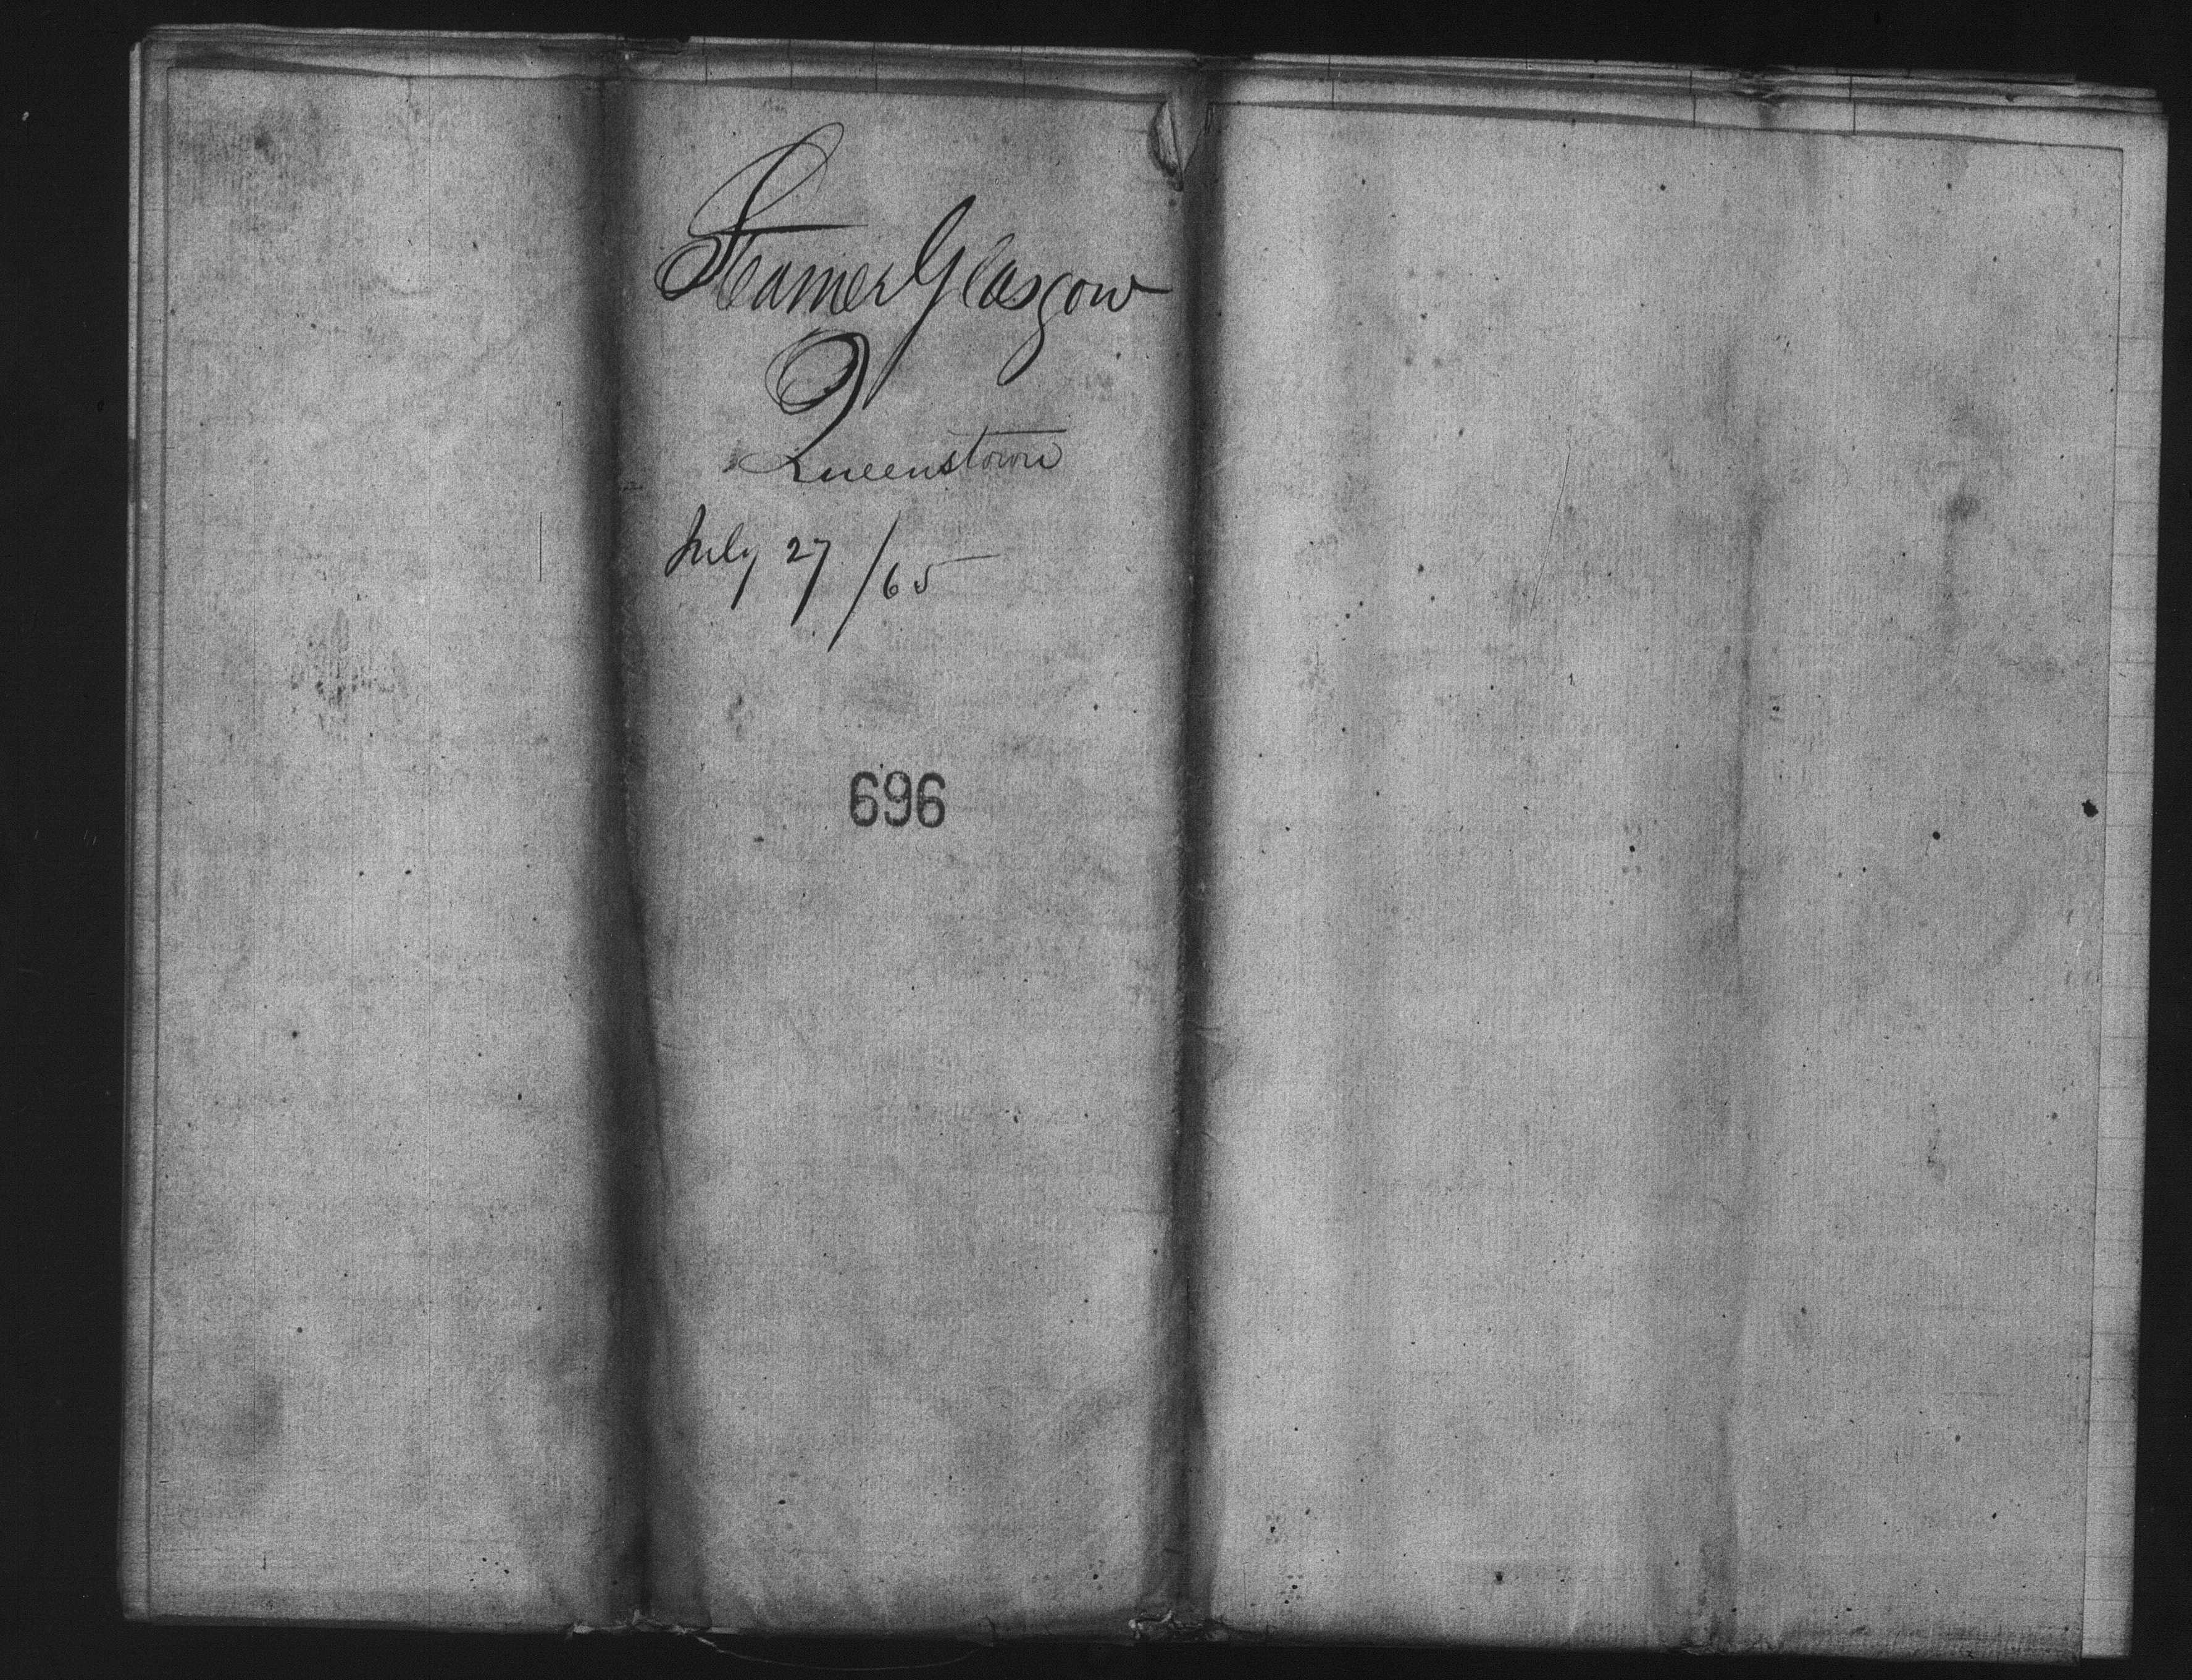 Steamer Glasgow
Queenstown
July 27/65
696